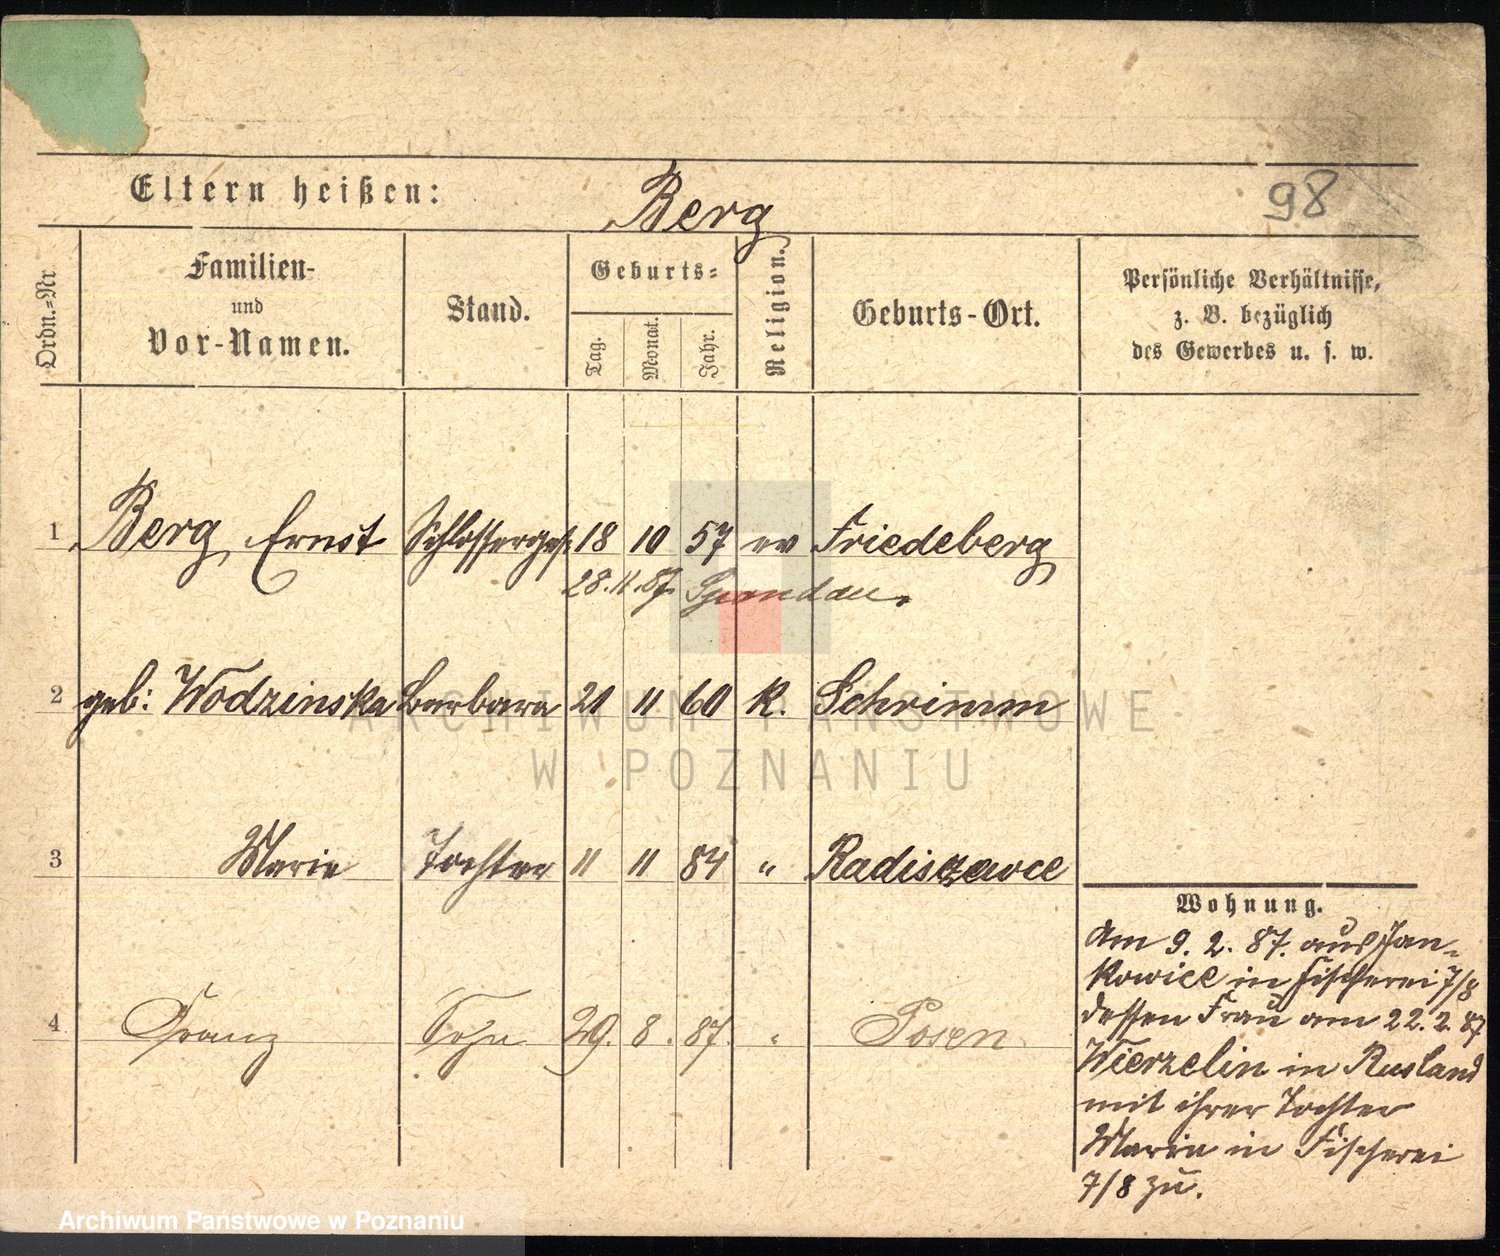 Eltern heißen: Berg 98
Ordn.=Nr
Familien-
und
Vor-Namen.
Stand.
Geburts=
Tag. Monat. Jahr.
Religion.
Geburts-Ort.
Persönliche Verhältnisse,
z. B. bezüglich
des Gewerbes u. s. w.
1 Berg Ernst Schlosserges. 18 10 57 ev Friedeberg
28. 11. 87. Spandau.
2 geb: Wodzinska Barbara 21 11 60 k. Schrimm
ARCHIWUM PAŃSTWOWE
W POZNANIU
3 Marie Tochter 11 11 84 " Radiszewce
4 Franz Sohn 29. 8. 87. " Posen
Wohnung.
Am 9. 2. 87. aus Jan-
kowice in Fischerei 7/8
dessen Frau am 22. 2. 87
Wierzelin in Rusland
mit ihrer Tochter
Marie in Fischerei
7/8 zu.
Archiwum Państwowe w Poznaniu